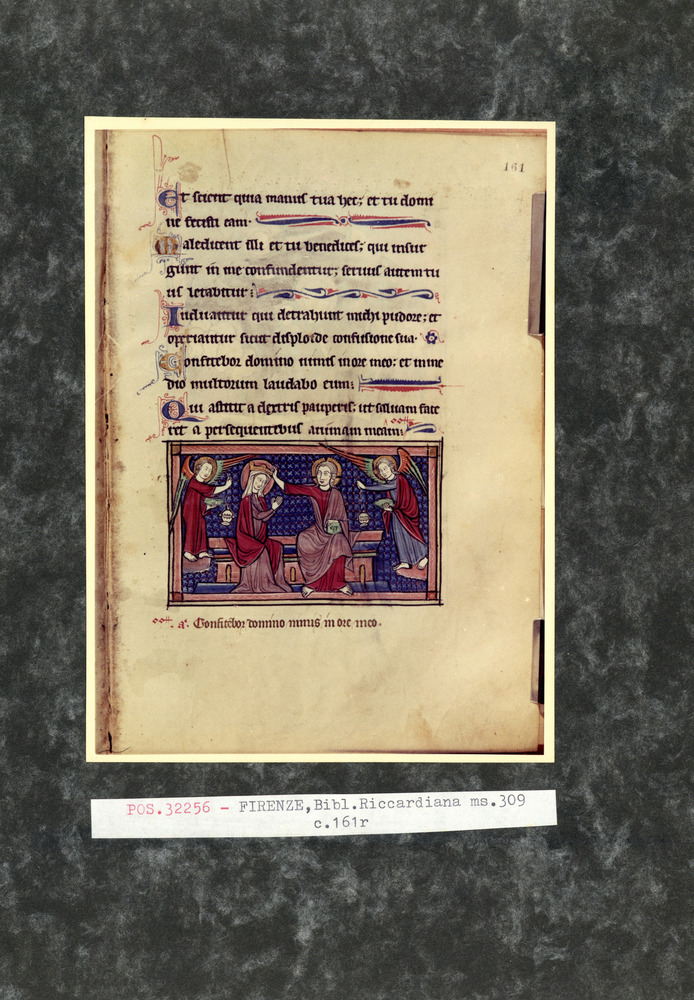 161
Et scient quia manus tua hec; et tu domi
ne fecisti eam.
Maledicent illi et tu benedices; qui insur
gunt in me confundentur; seruus autem tu
us letabitur:
Induantur qui detrahunt michi pudore; et
operiantur sicut diploide confusione sua.
Confitebor domino nimis in ore meo: et in me
dio multorum laudabo eum:
Qui astitit a dextris pauperis: ut saluam face
ret a persequentibus animam meam:
a. Confitebor domino nimis in ore meo.
POS.32256 - FIRENZE,Bibl.Riccardiana ms.309
c.161r